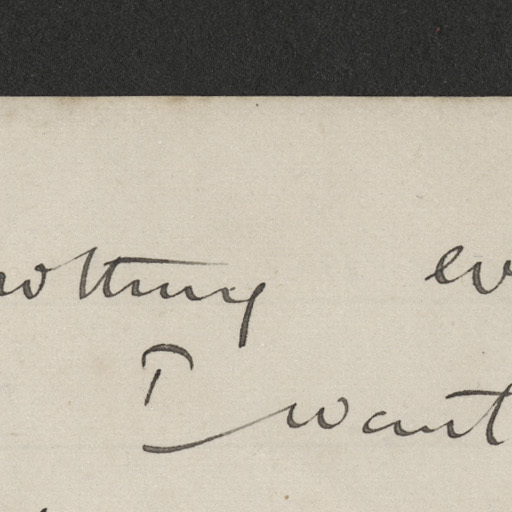 nothing ev
I want